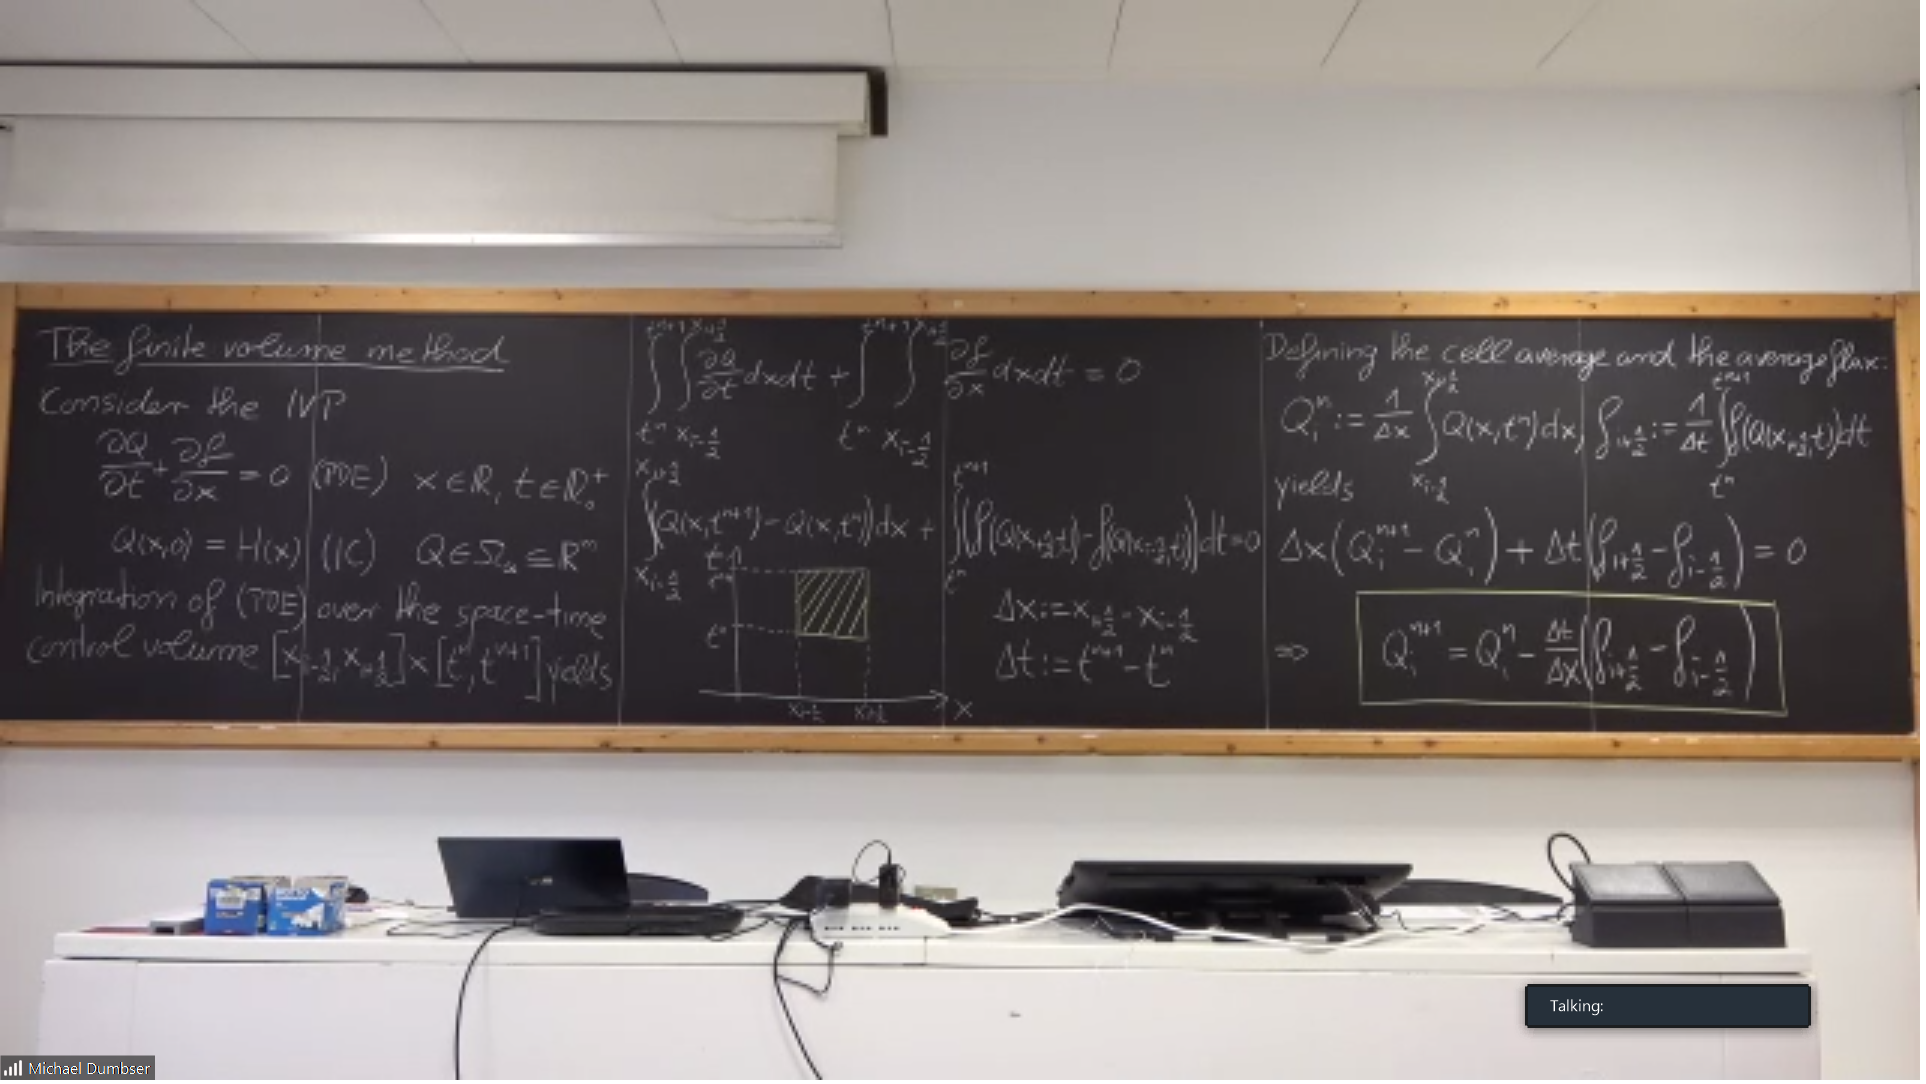 The finite volume method
Consider the IVP
∂Q/∂t + ∂f/∂x = 0 (PDE) x ∈ ℝ, t ∈ ℝ₀⁺
Q(x,0) = H(x) (IC) Q ∈ Ω ⊆ ℝᵐ
Integration of (PDE) over the space-time
control volume [x_{i-1/2}, x_{i+1/2}] × [tⁿ, tⁿ⁺¹] yields
∫_{tⁿ}^{tⁿ⁺¹} ∫_{x_{i-1/2}}^{x_{i+1/2}} ∂Q/∂t dxdt + ∫_{tⁿ}^{tⁿ⁺¹} ∫_{x_{i-1/2}}^{x_{i+1/2}} ∂f/∂x dxdt = 0
∫_{x_{i-1/2}}^{x_{i+1/2}} (Q(x,tⁿ⁺¹) − Q(x,tⁿ)) dx + ∫_{tⁿ}^{tⁿ⁺¹} (f(Q(x_{i+1/2},t)) − f(Q(x_{i-1/2},t))) dt = 0
t
tⁿ⁺¹
tⁿ
x_{i-1/2} x_{i+1/2} x
Δx := x_{i+1/2} − x_{i-1/2}
Δt := tⁿ⁺¹ − tⁿ
Defining the cell average and the average flux:
Q_iⁿ := 1/Δx ∫_{x_{i-1/2}}^{x_{i+1/2}} Q(x,tⁿ) dx, f_{i+1/2} := 1/Δt ∫_{tⁿ}^{tⁿ⁺¹} f(Q(x_{i+1/2},t)) dt
yields
Δx (Q_iⁿ⁺¹ − Q_iⁿ) + Δt (f_{i+1/2} − f_{i-1/2}) = 0
⇒ Q_iⁿ⁺¹ = Q_iⁿ − Δt/Δx (f_{i+1/2} − f_{i-1/2})
Talking:
Michael Dumbser